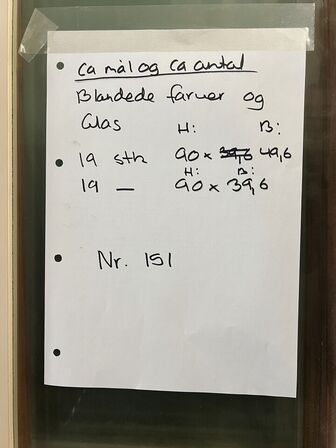 ca mål og ca antal
Blandede farver og
Glas H: B:
19 stk 90 x 49,6
H: B:
19 — 90 x 39,6
Nr. 151